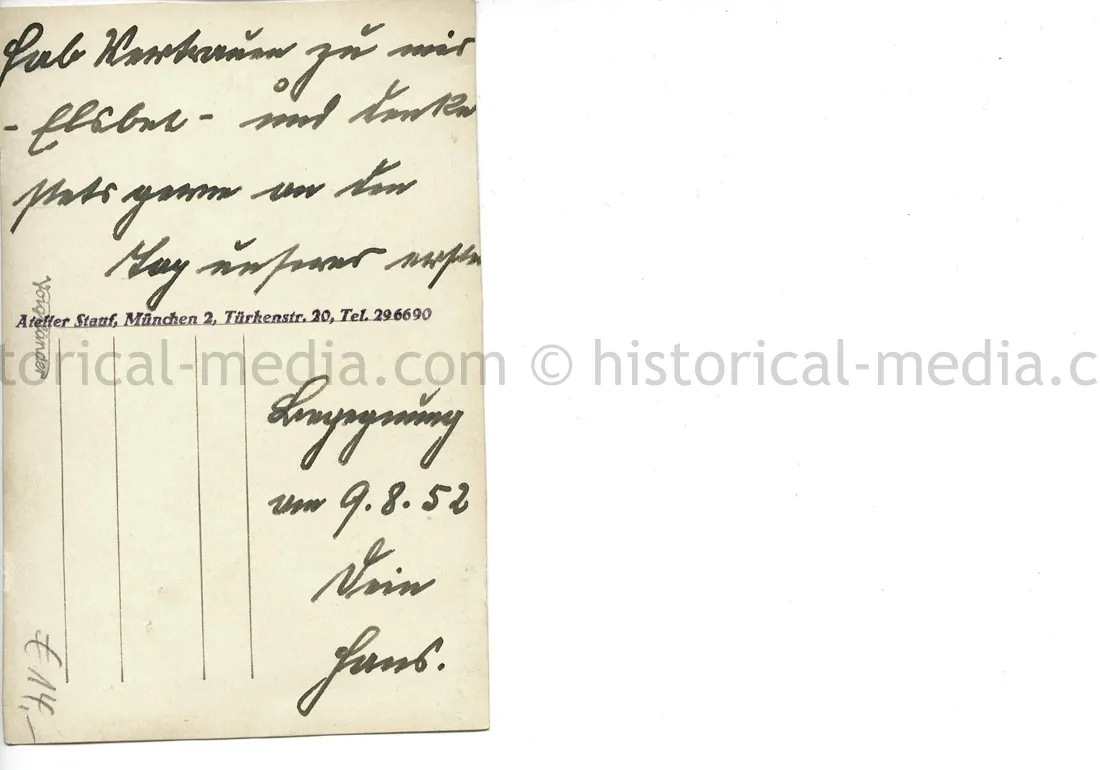 Hab Vertrauen zu mir
- Elsbet - und denke
stets gerne an den
Tag unseres erste
Voigtländer
Atelier Stauf, München 2, Türkenstr. 20, Tel. 296690
torical-media.com © historical-media.c
Begegnung
am 9.8.52
Dein
Hans.
€ 14,-